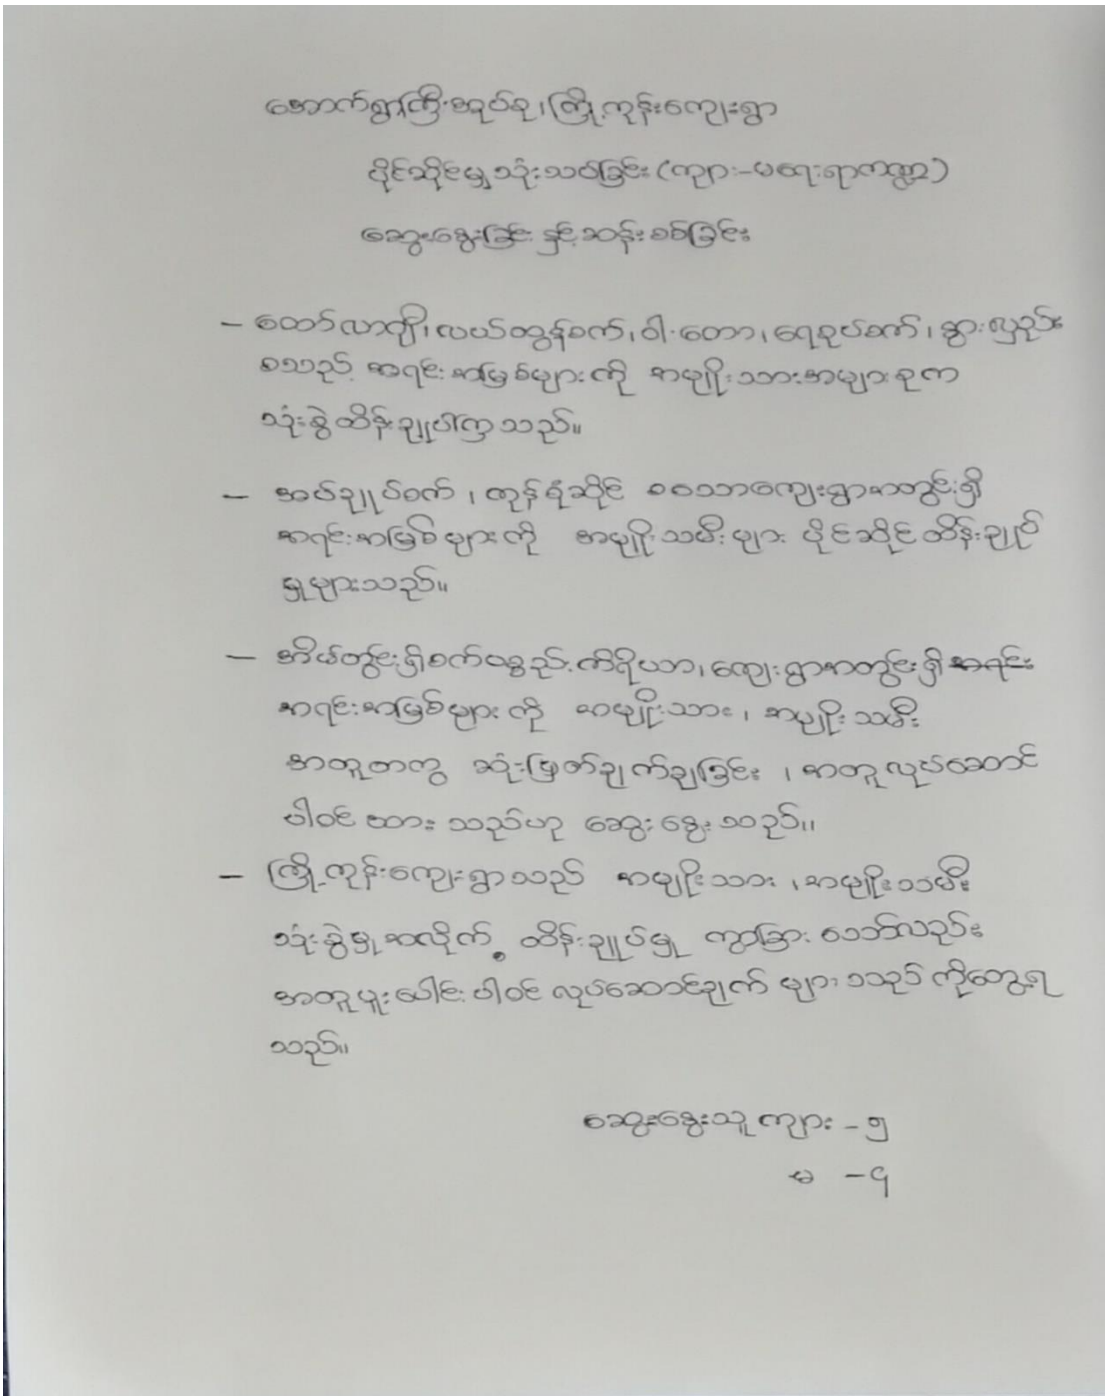 အောက်ရွာကြီးအုပ်စု၊ကြို့ကုန်းကျေးရွာ
ပိုင်ဆိုင်မှု သုံးသပ်ခြင်း (ကျား-မရေးရာကဏ္ဍ)
ဆွေးနွေးခြင်း နှင့် ဆန်းစစ်ခြင်း
– ထော်လာဂျီ၊ လယ်ထွန်စက်၊ ဝါးတော၊ ရေစုပ်စက်၊ နွားလှည်း
စသည့် အရင်းအမြစ်များကို အမျိုးသားအများစုက
သုံးစွဲထိန်းချုပ်ကြသည်။
– အပ်ချုပ်စက်၊ ကုန်စုံဆိုင် စသောကျေးရွာအတွင်းရှိ
အရင်းအမြစ်များကို အမျိုးသမီးများ ပိုင်ဆိုင်ထိန်းချုပ်
မှုများသည်။
– အိမ်တွင်းရှိစက်ပစ္စည်းကိရိယာ၊ကျေးရွာအတွင်းရှိ အရင်း
အရင်းအမြစ်များကို အမျိုးသား၊ အမျိုးသမီး
အတူတကွ ဆုံးဖြတ်ချက်ချခြင်း၊ အတူလုပ်ဆောင်
ပါဝင်ထားသည်ဟု ဆွေးနွေးသည်။
– ကြို့ကုန်းကျေးရွာသည် အမျိုးသား၊အမျိုးသမီး
သုံးစွဲမှုအလိုက် ထိန်းချုပ်မှု ကွာခြားသော်လည်း
အတူပူးပေါင်းပါဝင် လုပ်ဆောင်ချက်များသည် ကိုတွေ့ရ
သည်။
ဆွေးနွေးသူ ကျား - ၅
မ - ၄